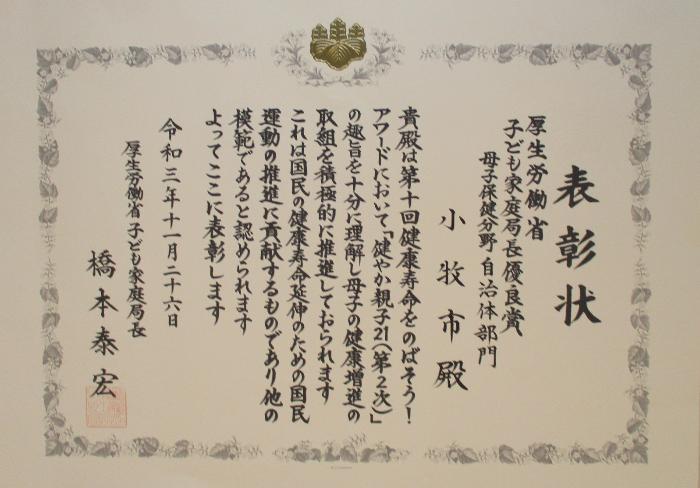 表彰状
厚生労働省
子ども家庭局長優良賞
母子保健分野 自治体部門
小牧市殿
貴殿は第十回健康寿命をのばそう！
アワードにおいて「健やか親子21（第２次）」
の趣旨を十分に理解し母子の健康増進の
取組を積極的に推進しておられます
これは国民の健康寿命延伸のための国民
運動の推進に貢献するものであり他の
模範であると認められます
よってここに表彰します
令和三年十一月二十六日
厚生労働省子ども家庭局長
橋本泰宏